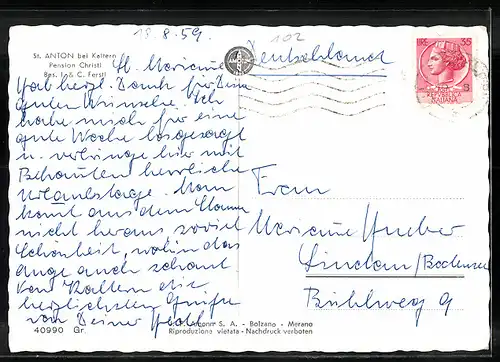 18.8.59.
102
St. ANTON bei Kaltern
Pension Christl
Bes. I. & C. Ferstl
Deutschland
LIRE 35
REPUBBLICA
ITALIANA
Lb. Marianne
Hab herzl. Dank für Deine
guten Wünsche. Ich
habe mich für eine
gute Woche losgesagt
u. verbringe hier mit
Bekannten herrliche
Urlaubstage. Man
kommt aus dem Staunen
nicht heraus, soviel
Schönheit, wohin das
Auge auch schaut.
Von Kaltern die
herzlichsten Grüße
von Deiner
Frau
Marianne Huber
Lindau/Bodensee
Bühlweg 9
S. A. - Bolzano - Merano
40990 Gr.
Riproduzione vietata - Nachdruck verboten